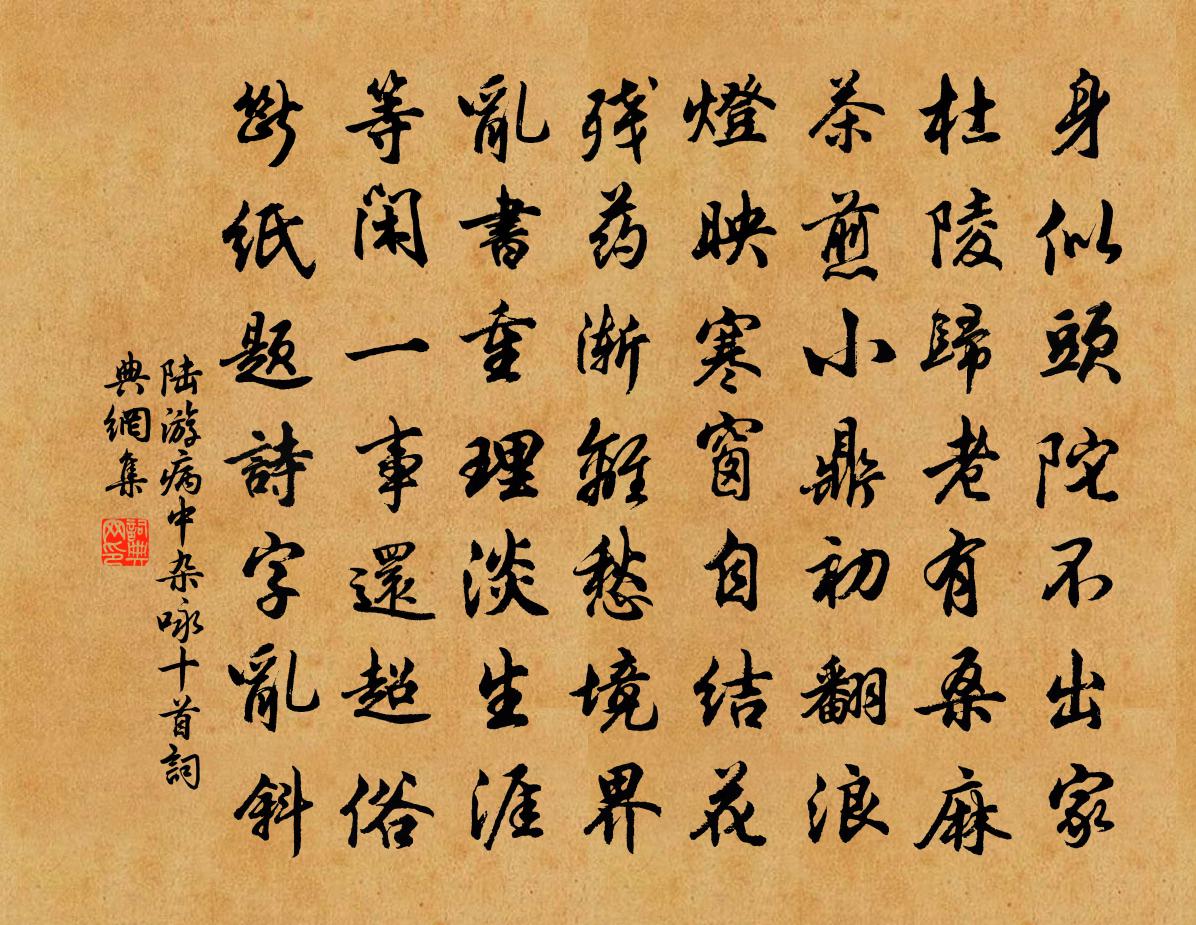 身似頭陀不出家
杜陵歸老有桑麻
茶煎小鼎初翻浪
燈映寒窗自結花
残药渐離愁境界
亂書重理淡生涯
等閑一事還超俗
斷紙题詩字亂斜
陆游病中杂咏十首詞
典網集
詞典网印